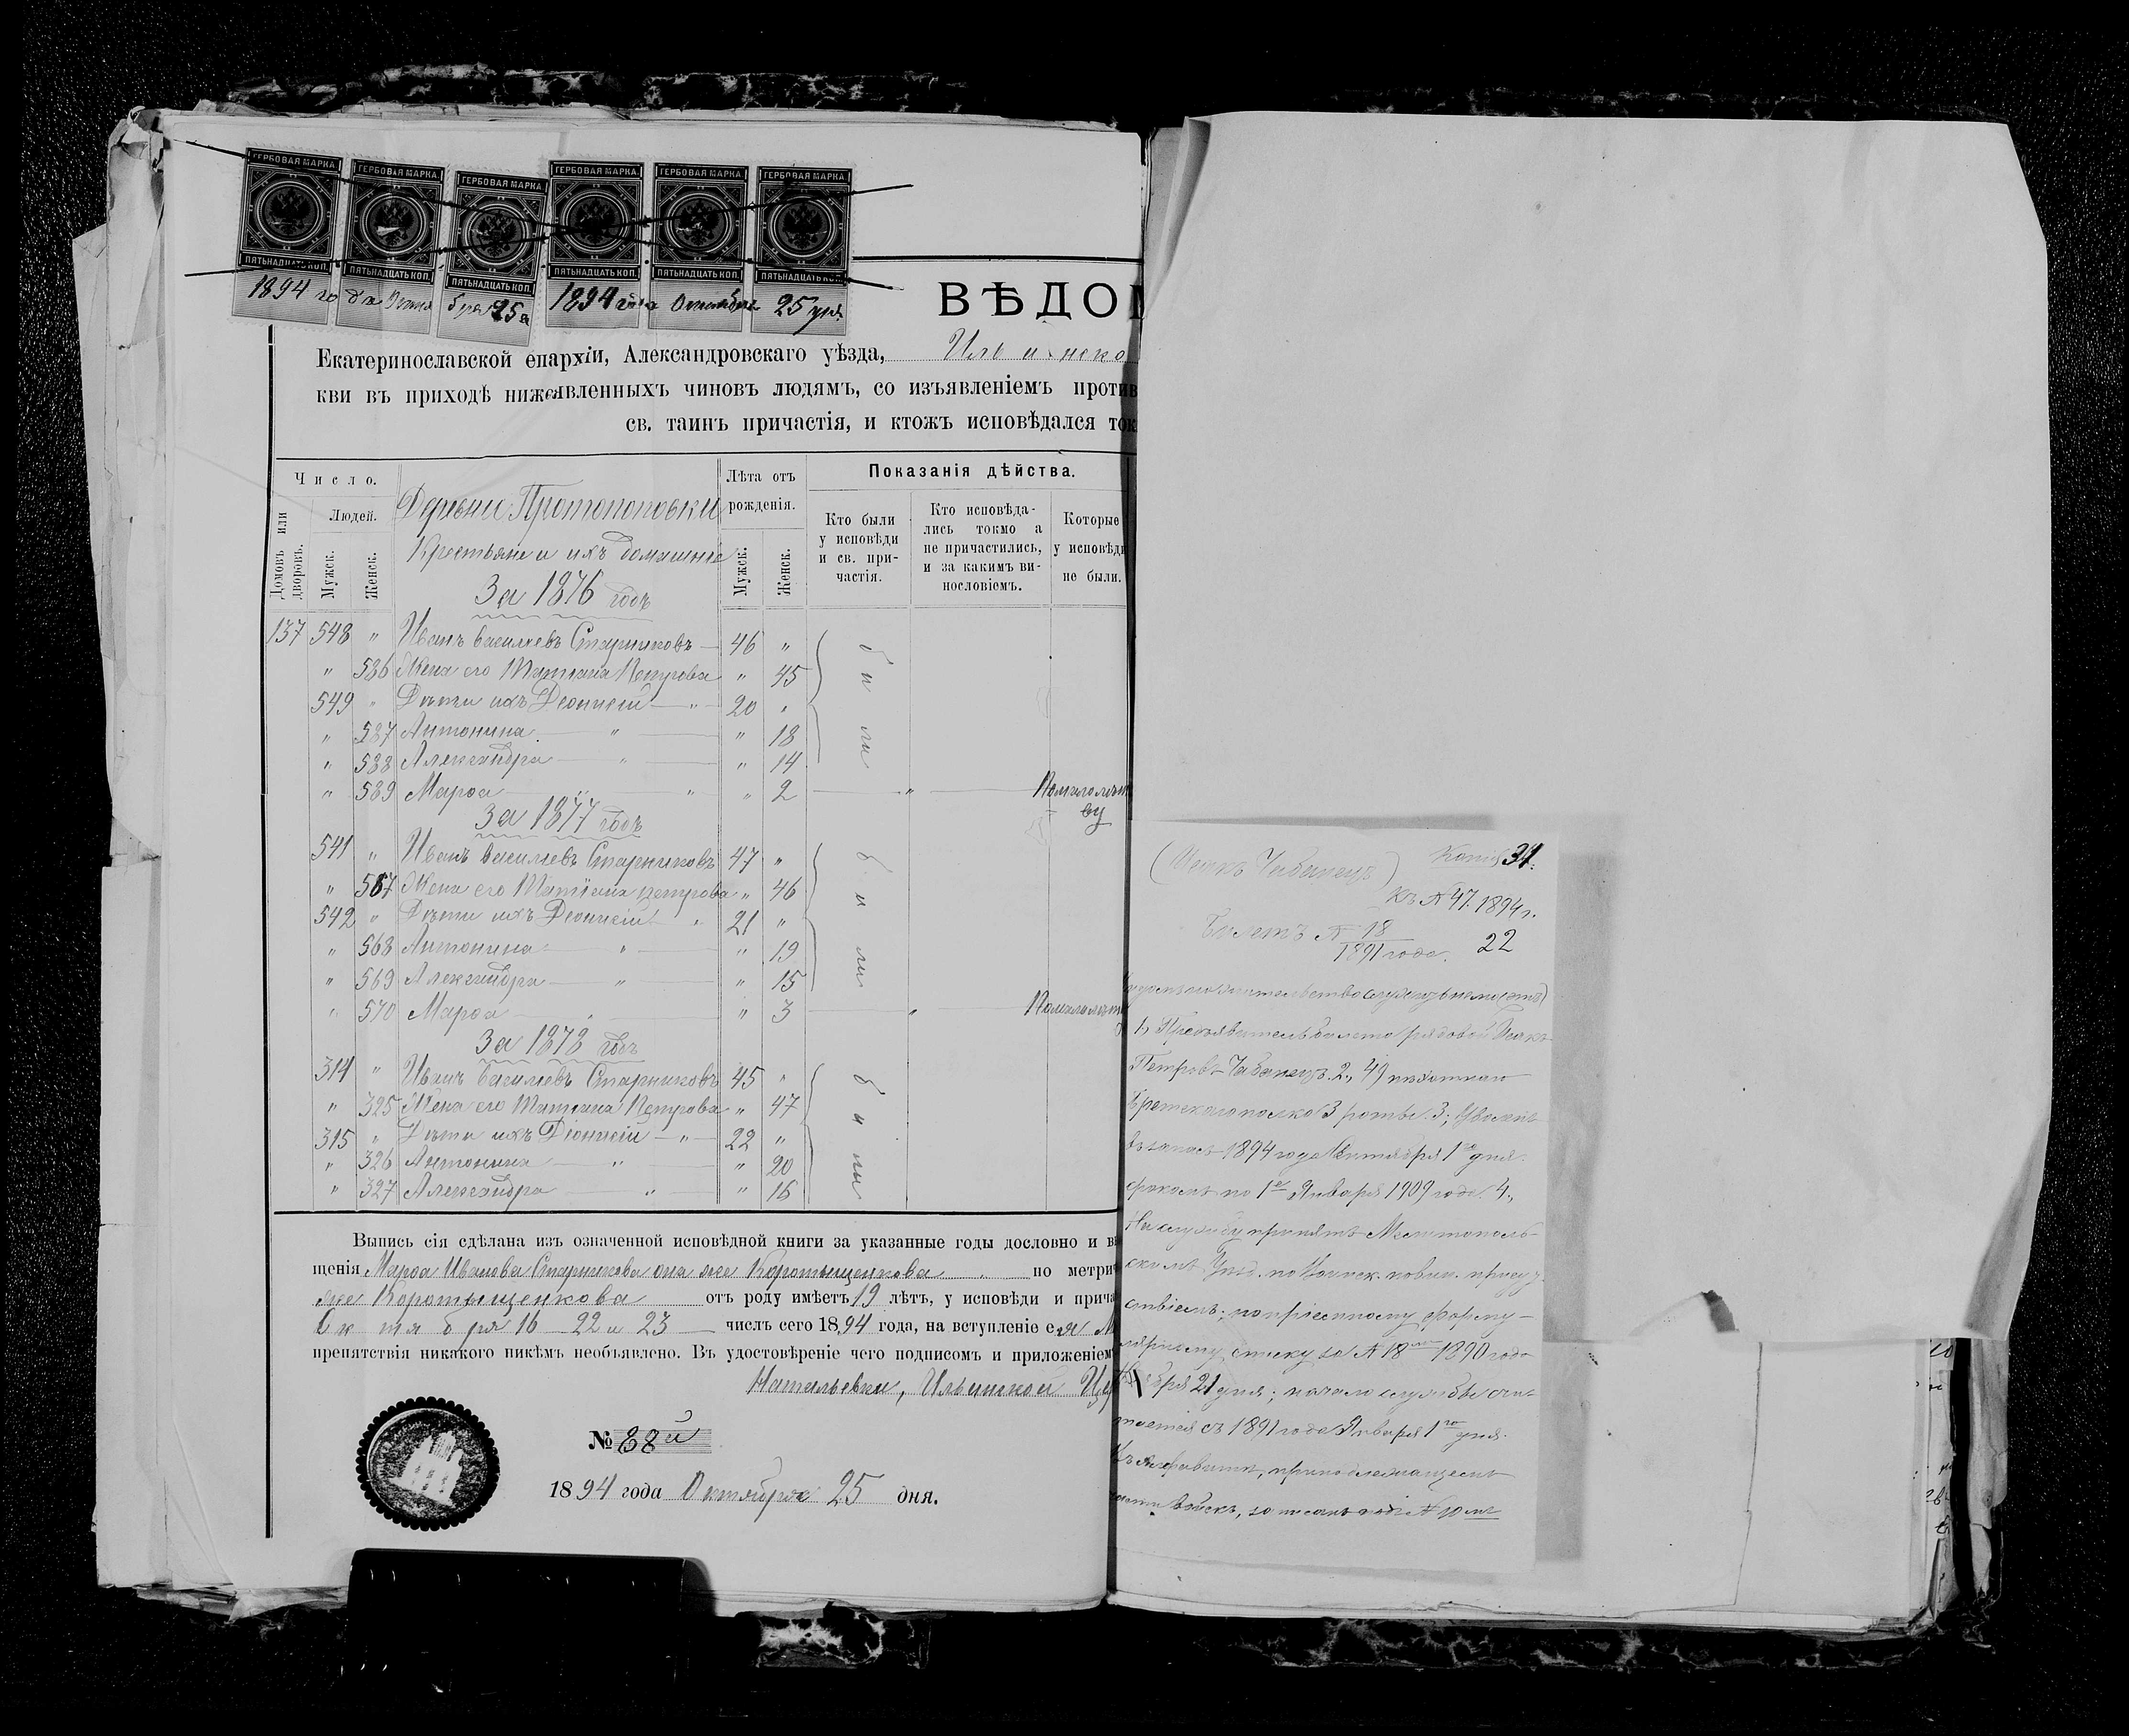 ГЕРБОВАЯ МАРКА. ГЕРБОВАЯ МАРКА. ГЕРБОВАЯ МАРКА. ГЕРБОВАЯ МАРКА. ГЕРБОВАЯ МАРКА. ГЕРБОВАЯ МАРКА.
ПЯТЬНАДЦАТЬ КОП. ПЯТЬНАДЦАТЬ КОП. ПЯТЬНАДЦАТЬ КОП. ПЯТЬНАДЦАТЬ КОП. ПЯТЬНАДЦАТЬ КОП. ПЯТЬНАДЦАТЬ КОП.
1894 года Октября 25 1894 года Октября 25 дня.
ВѢДОМ
Екатеринославской епархіи, Александровскаго уѣзда, Ильинско
кви въ приходѣ нижеявленныхъ чиновъ людямъ, со изъявленіемъ против
св. таинъ причастія, и ктожъ исповѣдался ток
Число.
Домовъ или дворовъ.
Людей.
Мужск.
Женск.
Деревни Протопоповки
Крестьяне и ихъ домашніе
Лѣта отъ рожденія.
Мужск.
Женск.
Показанія дѣйства.
Кто были у исповѣди и св. причастія.
Кто исповѣдались токмо а не причастились, и за какимъ винословіемъ.
Которые у исповѣди не были.
За 1876 годъ
137 548 " Иванъ Васильевъ Старчиковъ 46 "
" 586 Жена его Татіана Петрова " 45
549 " Дѣти ихъ Діонисій " 20 "
" 587 Антонина " " 18
" 588 Александра " " 14
были
" 589 Марѳа " " 2 " По малолѣт
ву
За 1877 годъ
541 " Иванъ Васильевъ Старчиковъ 47 "
" 567 Жена его Татіана Петрова " 46
542 " Дѣти ихъ Діонисій " 21 "
" 568 Антонина " " 19
" 569 Александра " " 15
были
" 570 Марѳа " " 3 " По малолѣт
За 1878 годъ
314 " Иванъ Васильевъ Старчиковъ 45 "
" 325 Жена его Татіана Петрова " 47
315 " Дѣти ихъ Діонисій " 22 "
" 326 Антонина " " 20
" 327 Александра " " 16
были
Выпись сія сдѣлана изъ означенной исповѣдной книги за указанные годы дословно и в
щенія Марѳа Иванова Старчикова она же Коротыщенкова по метри
же Коротыщенкова отъ роду имѣетъ 19 лѣтъ, у исповѣди и прича
Октября 16 22 и 23 числъ сего 1894 года, на вступленіе ея
препятствія никакого никѣмъ необъявлено. Въ удостовѣреніе чего подписомъ и приложеніем
Натальевки, Ильинской Це
№ 88й
1894 года Октября 25 дня.
Копія 34.
(Исакъ Чабанецъ)
Къ № 47. 1894 г.
Билетъ № 18
1891 года. 22
1, Предъявитель билета рядовой Исакъ
Петровъ Чабанецъ. 2, 49 пѣхотнаго
Брестскаго полка 3 роты. 3, Уволенъ
въ запасъ 1894 года Сентября 1го дня.
срокомъ по 1е Января 1909 года. 4,
На службу принятъ Мелитополь-
скимъ Уѣзд. по Воинск. повин. присут-
ствіемъ; по пріемному форму-
лярному списку за № 18 1890 года
бря 21 дня; начало службы счи-
тается съ 1891 года Января 1го дня.
части войскъ, записанъ подъ № 10